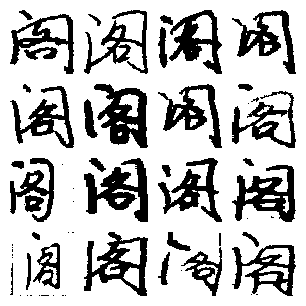 阁阁阁阁
阁阁阁阁
阁阁阁阁
阁阁阁阁